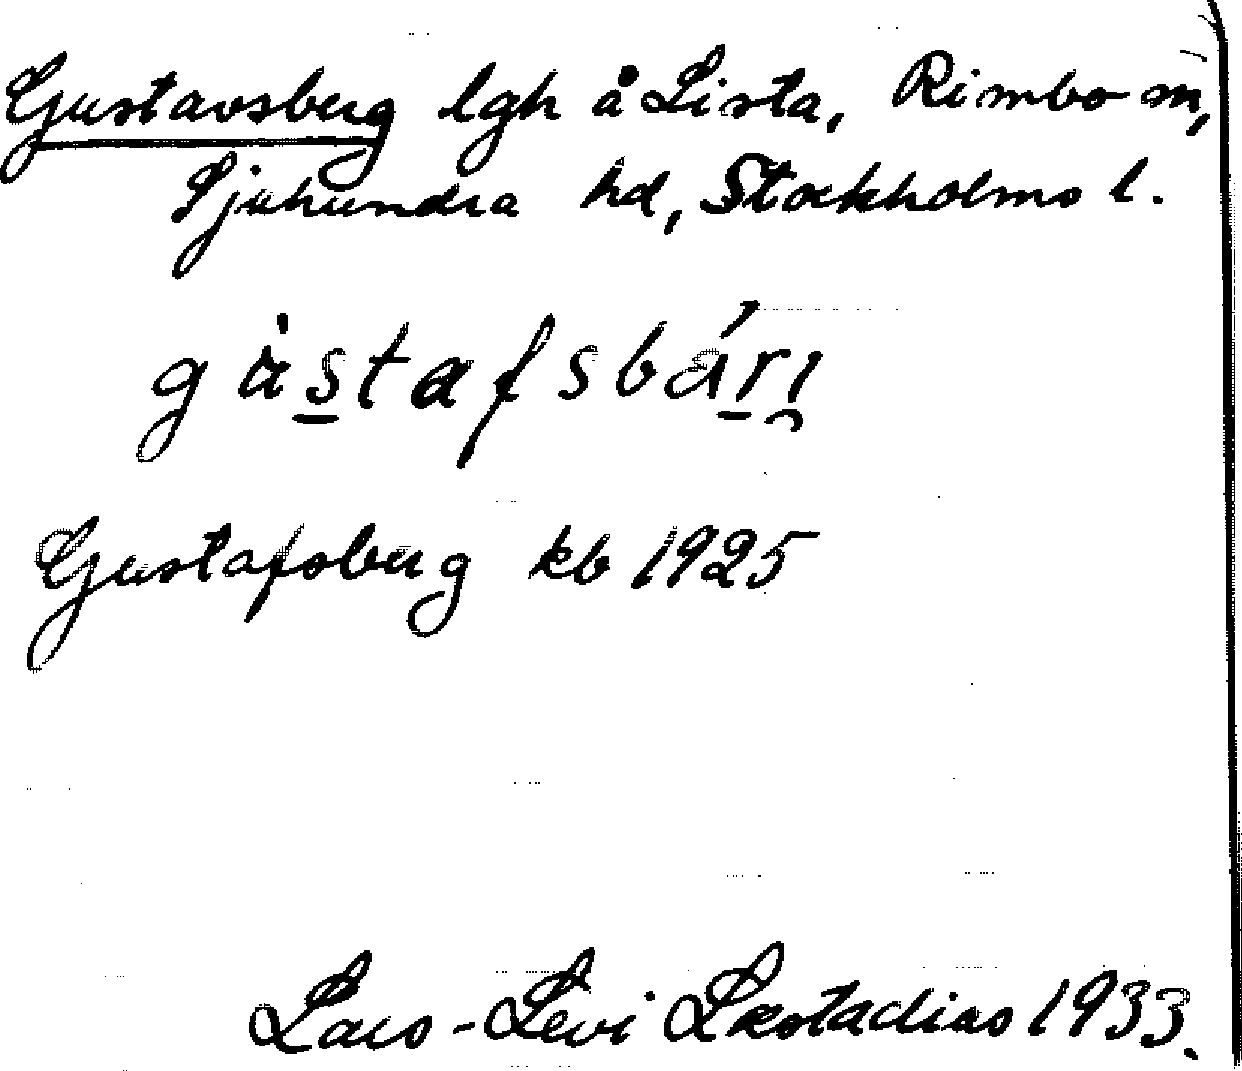 Gustavsberg lgh å Lista, Rimbo sn,
Sjuhundra hd, Stockholms l.
gùstafsbǽrj
Gustafsberg kb 1925
Lars-Levi Læstadius 1933.